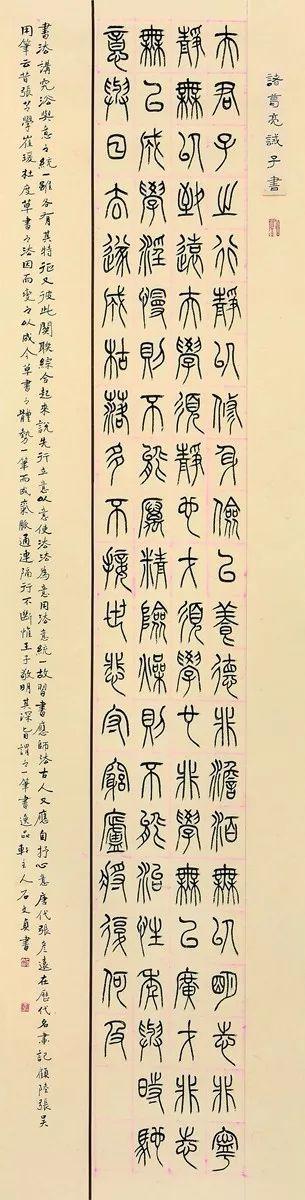 諸葛亮誡子書
夫君子之行靜以修身儉以養德非澹泊無以明志非寧
靜無以致遠夫學須靜也才須學也非學無以廣才非志
無以成學淫慢則不能勵精險躁則不能治性年與時馳
意與日去遂成枯落多不接世悲守窮廬將復何及
書法講究法與意之統一雖各有其特征又彼此關聯綜合起來說先行立意以意使法法為意用法意統一故習書應師法古人又應自抒心意唐代張彥遠在歷代名畫記顧陸張吳
用筆云昔張芝學崔瑗杜度草書之法因而變之以成今草書之體勢一筆而成氣脈通連隔行不斷惟王子敬明其深旨謂之一筆書逸品軒主人石文貞書